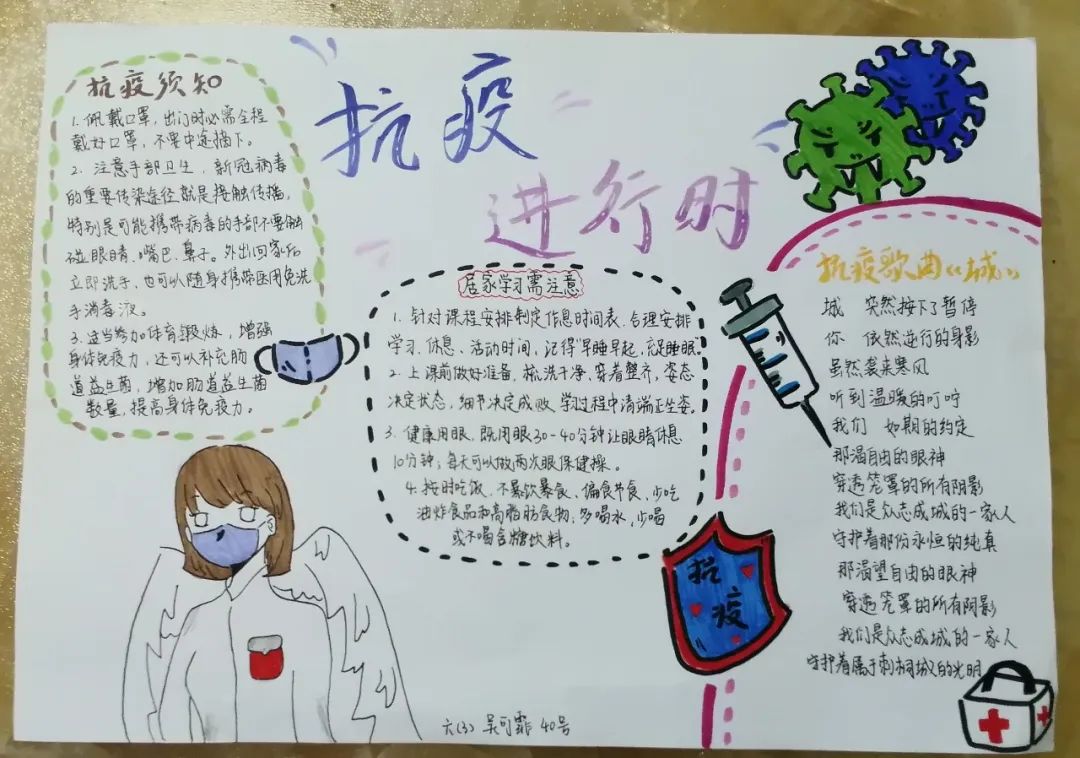 抗疫
进行时
抗疫须知
1. 佩戴口罩，出门时必需全程
戴好口罩，不要中途摘下。
2. 注意手部卫生，新冠病毒
的重要传染途径就是接触传播，
特别是可能携带病毒的手部不要触
碰眼睛、嘴巴、鼻子。外出回家后
立即洗手，也可以随身携带医用免洗
手消毒液。
3. 适当参加体育锻炼，增强
身体免疫力，还可以补充肠
道益生菌，增加肠道益生菌
数量，提高身体免疫力。
居家学习需注意
1. 针对课程安排制定作息时间表，合理安排
学习、休息、活动时间，记得“早睡早起，充足睡眠。
2. 上课前做好准备，梳洗干净，穿着整齐，姿态
决定状态，细节决定成败，学习过程中请端正坐姿。
3. 健康用眼，既用眼30-40分钟让眼睛休息
10分钟；每天可以做两次眼保健操。
4. 按时吃饭，不暴饮暴食、偏食节食，少吃
油炸食品和高脂肪食物；多喝水，少喝
或不喝含糖饮料。
抗疫歌曲《城》
城 突然按下了暂停
你 依然逆行的身影
虽然袭来寒风
听到温暖的叮咛
我们 如期的约定
那渴自由的眼神
穿透笼罩的所有阴影
我们是众志成城的一家人
守护着那份永恒的纯真
那渴望自由的眼神
穿透笼罩的所有阴影
我们是众志成城的一家人
守护着属于刺桐城的光明
抗
疫
六(3) 吴可霏 40号